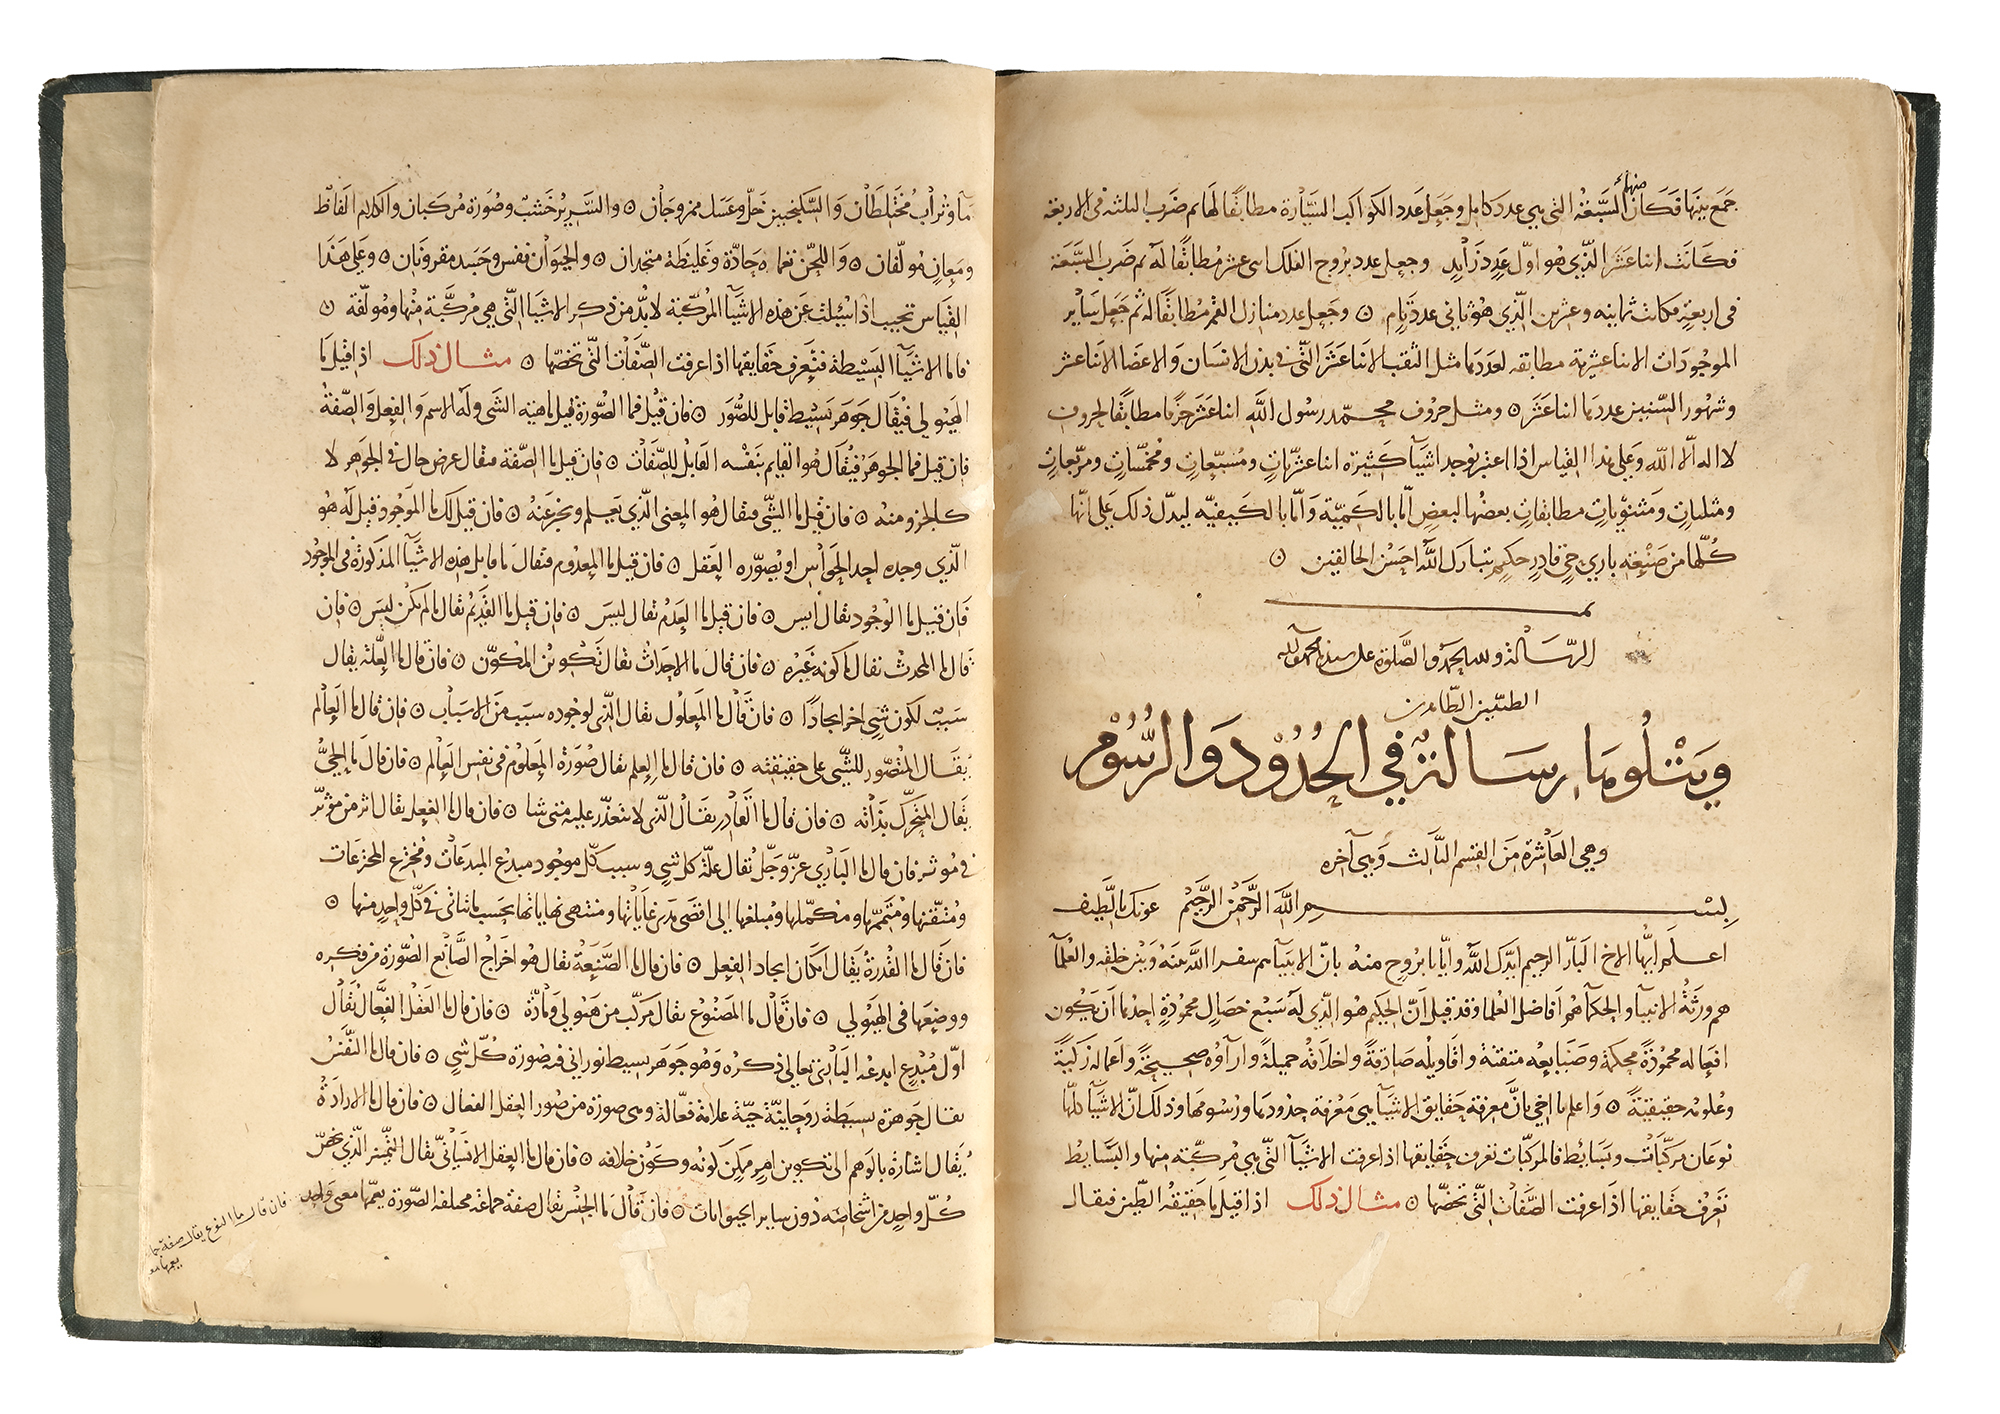 منها
جمع بينها فكان السبعة التي هي عدد كامل وجعل عدد الكواكب السيارة مطابقًا لها ثم ضرب الثلثة في الاربعة
فكانت اثنا عشر الذي هو اوّل عدد زايد وجعل عدد بروج الفلك اثنى عشر مطابقًا له ثم ضرب السبعة
في اربعة فكانت ثمانية وعشرين الذي هو ثاني عدد تام ۞ وجعل عدد منازل القمر مطابقًا له ثم جعل ساير
الموجودات الاثنا عشرية مطابقه لعددها مثل الثقب الاثنا عشر التي في بدن الانسان والاعضا الاثنا عشر
وشهور السنين عددها اثنا عشر ۞ ومثل حروف محمّد رسول الله اثنا عشر حرفا مطابقًا لحروف
لا اله الا الله وعلى هذا القياس اذا اعتبر يوجد اشيآ كثيرة اثنا عشريات ومسبّعات ومخمّسات ومربّعات
ومثلثات ومثنويات مطابقات بعضها لبعض امّا بالكميّة وامّا بالكيفيّه ليدلّ ذلك على انّها
كلّها من صنعة باري حيّ قادر حكيم تبارك الله احسن الخالقين ۞
الرسالة ولله الحمد والصّلوة على سيدنا محمد وآله
الطيّبين الطّاهرين
ويتلوها رسالة في الحدود والرسوم
وهي العاشرة من القسم الثالث وهي آخره
بسم الله الرحمن الرحيم عونك يا لطيف
اعلم ايّها الاخ البارّ الرحيم ايّدك الله وايّانا بروح منه بانّ الانبيآ هم سفرا الله عنه وبين خلقه والعلمآ
هم ورثة الانبيآ والحكمآ هم افاضل العلما وقد قيل انّ الحكيم هو الذي له سبع خصال محمودة احدها ان يكون
افعاله محمودة محكمة وصنايعه متقنة واقاويله صادقة واخلاقه جميلة وارآؤه صحيحة واعماله زكيّة
وعلومه حقيقيّة ۞ واعلم يا اخي بانّ معرفة حقايق الاشيآ هي معرفة حدودها ورسومها وذلك انّ الاشيآ كلّها
نوعان مركبات وبسائط فالمركّبات تعرف حقايقها اذا عرفت الاشيآ التي هي مركّبة منها والبسائط
تعرف حقايقها اذا عرفت الصفات التي تخصّها ۞ مثال ذلك اذا قيل ما حقيقة الطّين فيقال
مآ وتراب مختلطان والسكنجبين خلّ وعسل ممزوجان ۞ والسرير خشب وصورة مركبان والكلام الفاظ
ومعان مؤلّفان ۞ واللحن نغمة حادّة وغليظة متحدان ۞ والحيوان نفس وجسد مقرونان ۞ وعلى هذا
القياس تجيب اذا سئلت عن هذه الاشيآ المركّبة لا بدّ من ذكر الاشيآ التي هي مركّبة منها ومؤلّفة ۞
فاما الاشيآ البسيطة فتعرف حقايقها اذا عرفت الصّفات التي تخصّها ۞ مثال ذلك اذا قيل ما
الهيولي فيقال جوهر بسيط قابل للصّور ۞ فان قيل فما الصورة قيل ماهية الشي وله الاسم والفعل والصّفة
فان قيل فما الجوهر فيقال هو القايم بنفسه القابل للصّفات ۞ فان قيل ما الصّفة فيقال عرض حال في الجوهر لا
كالجزو منه ۞ فان قيل ما الشي فيقال هو المعنى الّذي يعلم ويخبر عنه ۞ فان قيل لك ما الموجود قيل له هو
الّذي وجده احد الحواس او يصوّره العقل ۞ فان قيل ما المعدوم فتقال ما قابل هذه الاشيآ المذكورة في الموجود
فان قيل ما الوجود يقال ايس ۞ فان قيل ما العدم يقال ليس ۞ فان قيل ما القديم يقال ما لم يكن ليس ۞ فان
قال ما المحدث يقال ما كونه غيره ۞ فان قال ما الاحداث يقال تكوين المكوّن ۞ فان قال ما العلّة يقال
سبب لكون شي اخر ايجادًا ۞ فان قال ما المعلول يقال الّذي لوجوده سبب من الاسباب ۞ فان قال ما العالم
يقال المتصّور للشّي على حقيقته ۞ فان قال ما العلم يقال صورة المعلوم في نفس العالم ۞ فان قال ما الحيّ
يقال المتحرّك بذاته ۞ فان قال ما القادر يقال الّذي لا يتعذّر عليه متى شا ۞ فان قال ما الفعل يقال اثر من مؤثّر
في مؤثر فان قال ما الباري عزّ وجلّ يقال علّة كل شي وسبب كلّ موجود مبدع المبدعات ومخترع المخترعات
ومتقنها ومتمّمها ومكمّلها ومبلغها الى اقصى مدى غاياتها ومنتهى نهاياتها بحسب ما تاتي في كلّ واحد منها ۞
فان قال ما القدرة يقال امكان ايجاد الفعل ۞ فان قال ما الصّنعة يقال هو اخراج الصّانع الصّورة من فكره
ووضعها في الهيولي ۞ فان قال ما المصنوع يقال مركّب من هيولي ومادّة ۞ فان قال ما العقل الفعّال يقال
اوّل مبدع ابدعه الباري تعالى ذكره وهو جوهر بسيط نوراني فيه صورة كلّ شي ۞ فان قال ما النّفس
يقال جوهرة بسيطة روحانيّة حيّة علامة فعّالة وهي صورة من صور العقل الفعال ۞ فان قال ما الارادة
يقال اشارة بالوهم الى تكوين امر ممكن كونه وكون خلافه ۞ فان قال ما العقل الانسانيّ يقال التّمييز الّذي يخصّ
كلّ واحد من اشخاصه دون ساير الحيوانات ۞ فان قال ما الجنس يقال صفة جماعة مختلفة الصّورة يعمّها معنى واحد
فان قال ما النوع يقال صفة جما
يعمها